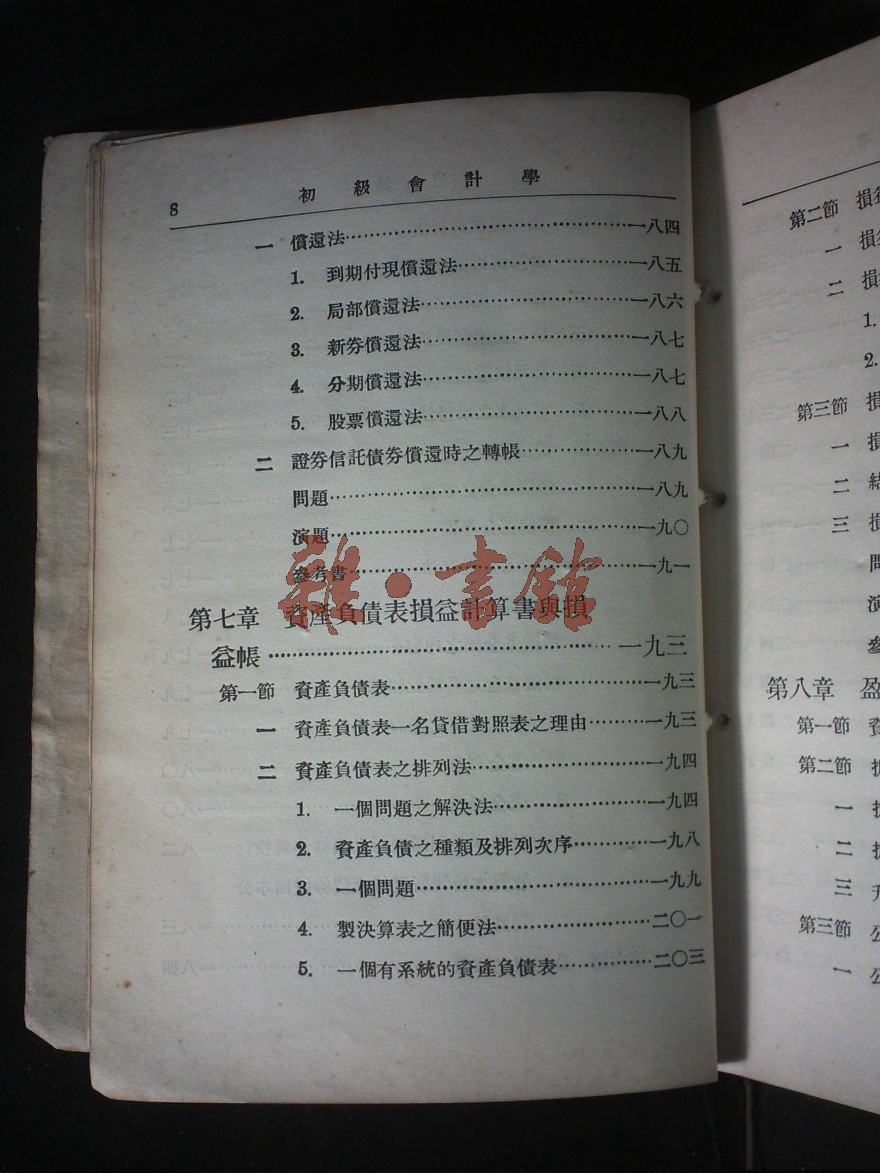 8 初級會計學
一 償還法……一八四
1. 到期付現償還法……一八五
2. 局部償還法……一八六
3. 新券償還法……一八七
4. 分期償還法……一八七
5. 股票償還法……一八八
二 證券信託債券償還時之轉帳……一八九
問題……一八九
演題……一九〇
參考書……一九一
第七章 資產負債表損益計算書與損
益帳……一九三
第一節 資產負債表……一九三
一 資產負債表一名貸借對照表之理由……一九三
二 資產負債表之排列法……一九四
1. 一個問題之解決法……一九四
2. 資產負債之種類及排列次序……一九八
3. 一個問題……一九九
4. 製決算表之簡便法……二〇一
5. 一個有系統的資產負債表……二〇三
雜·書館
第二節 損益
一 損益
二 損
1.
2.
第三節 損
一 損
二 結
三 損
問
演
參
第八章 盈
第一節 資
第二節
一
二
三
第三節 公
一 公